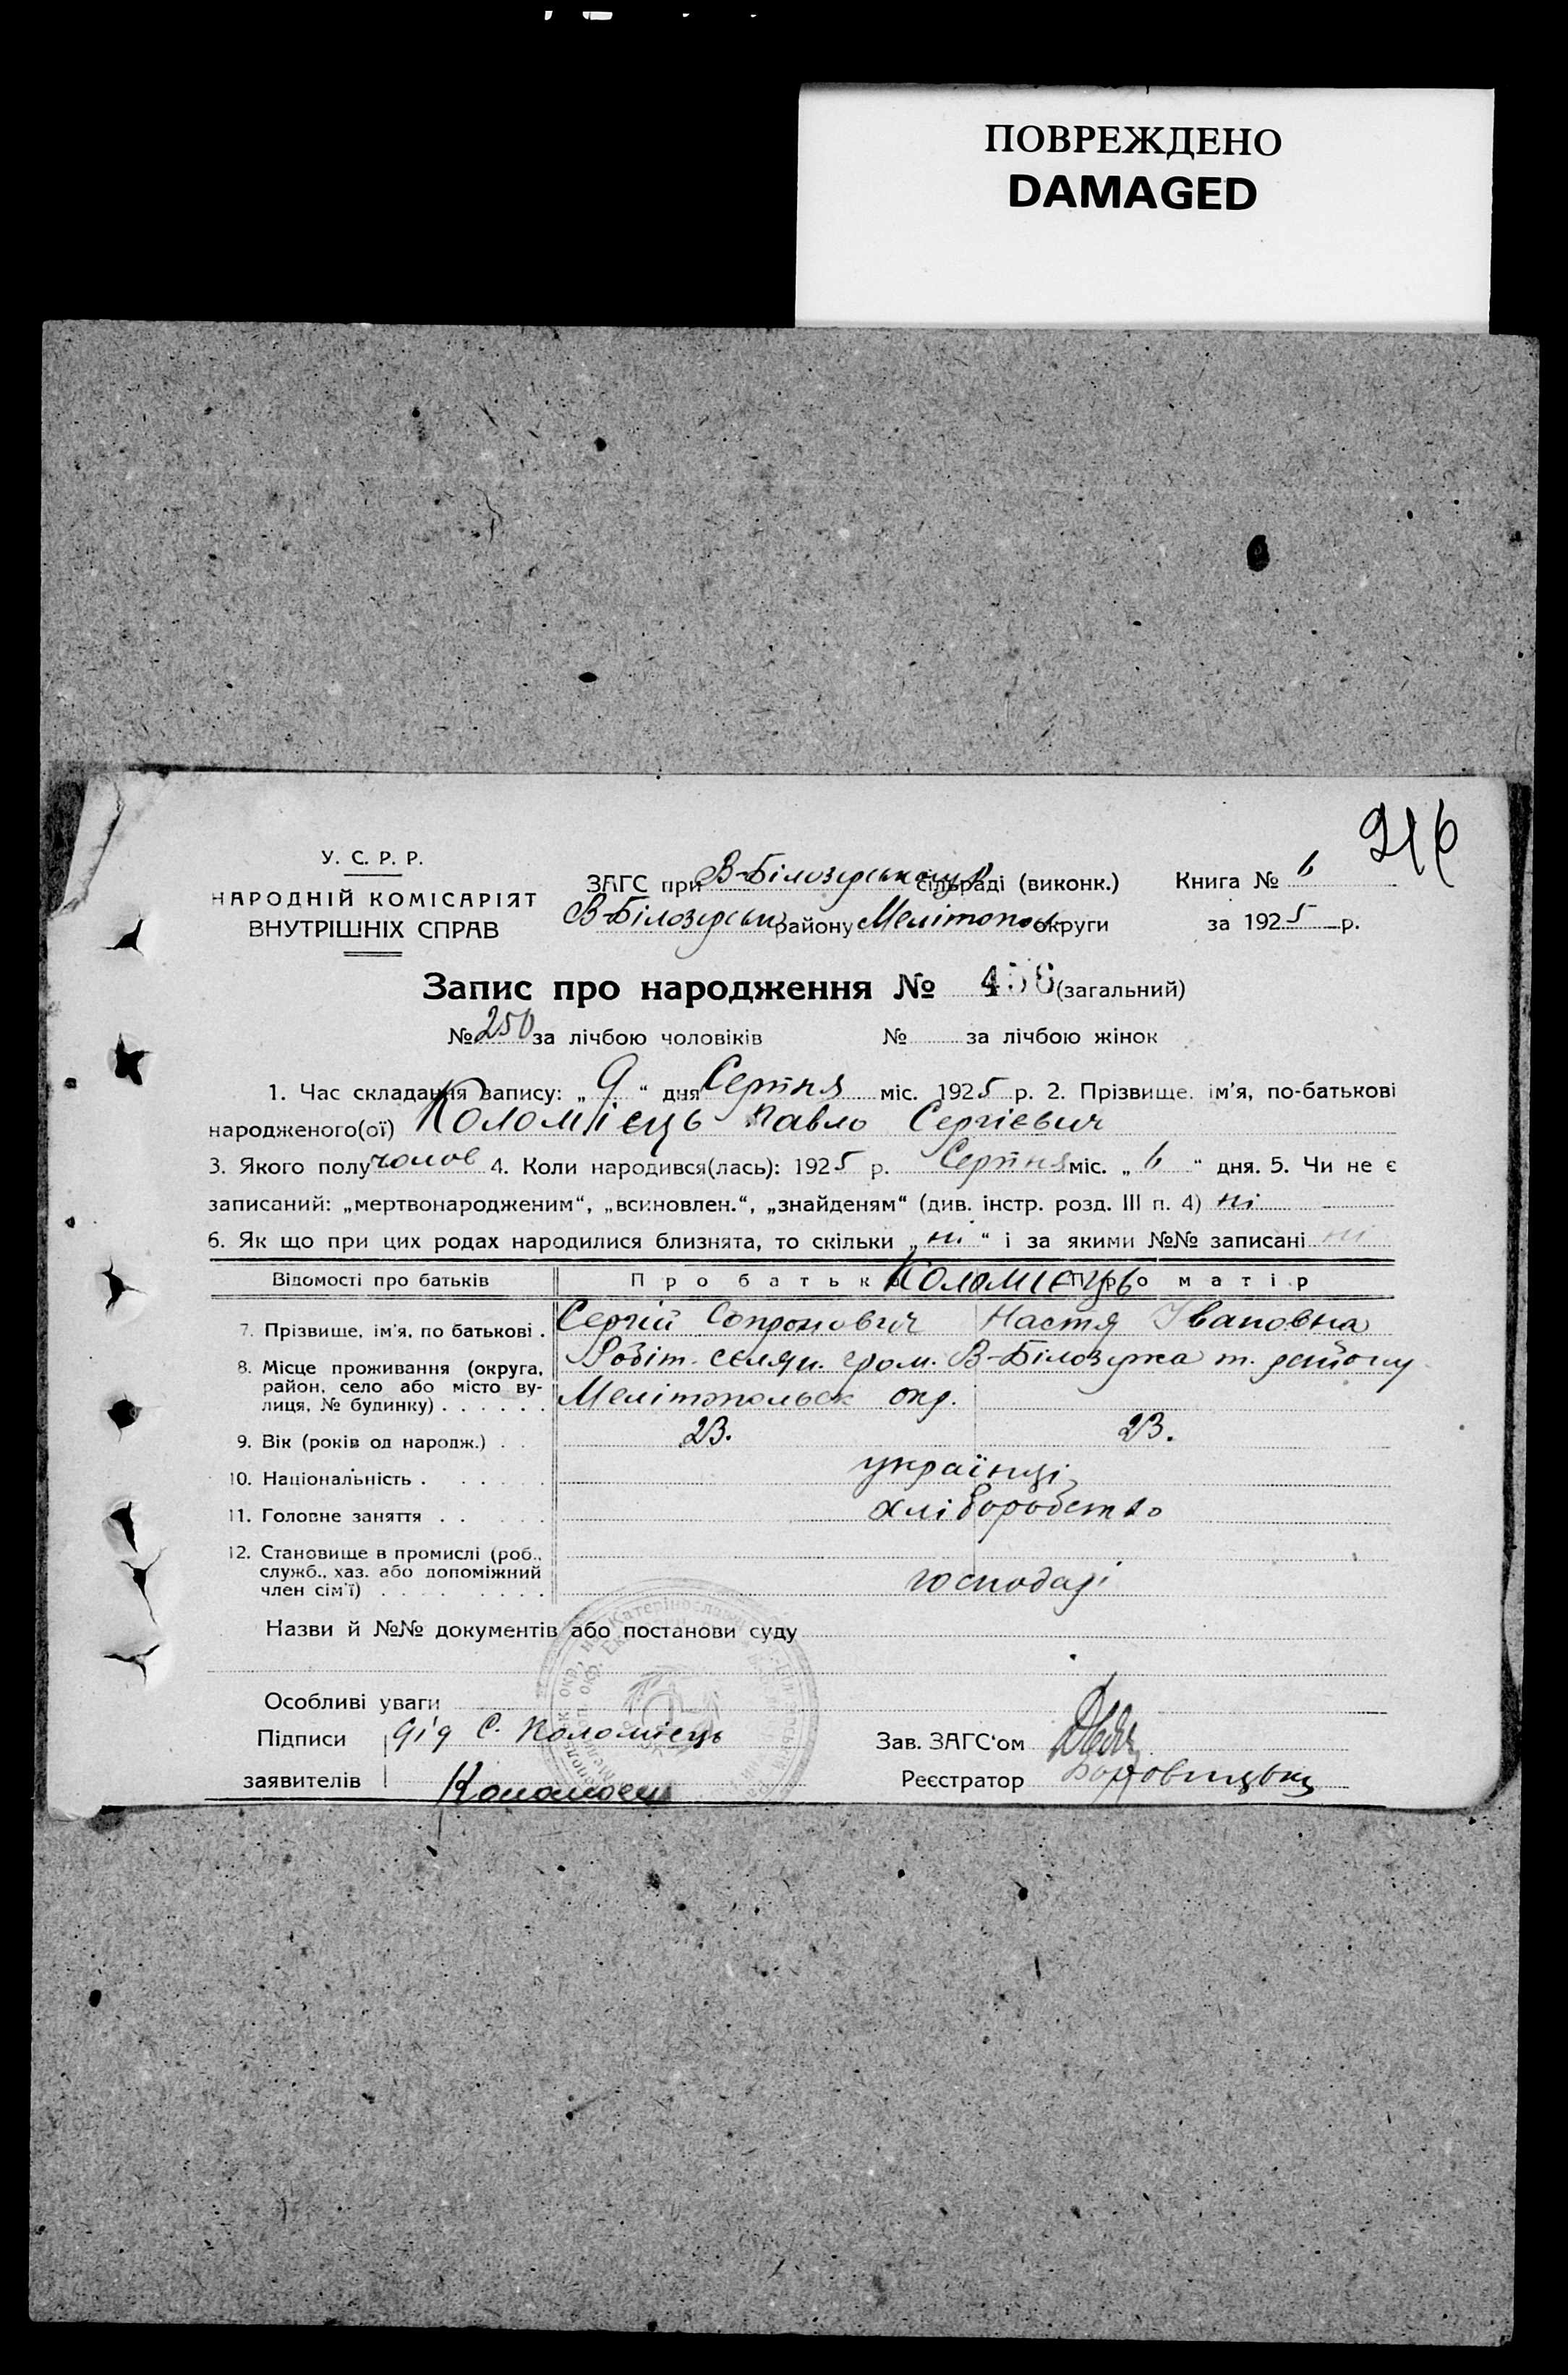 ПОВРЕЖДЕНО
DAMAGED
216
У. С. Р. Р.
НАРОДНІЙ КОМІСАРІЯТ
ВНУТРІШНІХ СПРАВ
ЗАГС при В-Білозерському сільраді (виконк.) Книга № 6
В-Білозерськ району Мелітопол округи за 1925 р.
Запис про народження № 456 (загальний)
№ 250 за лічбою чоловіків № за лічбою жінок
1. Час складання запису: „ 9 “ дня Серпня міс. 1925 р. 2. Прізвище, ім’я, по-батькові
народженого(ої) Коломієць Павло Сергієвич
3. Якого полу чолов 4. Коли народився(лась): 1925 р. Серпня міс. „ 6 “ дня. 5. Чи не є
записаний: „мертвонародженим“, „всиновлен.“, „знайденям“ (див. інстр. розд. III п. 4) ні
6. Як що при цих родах народилися близнята, то скільки „ ні “ і за якими №№ записані ні
Відомості про батьків Про батька Коломієць Про матір
7. Прізвище, ім’я, по батькові . Сергій Сопронович Настя Івановна
8. Місце проживання (округа, Робіт. селян. гром. В-Білозерка т. району
район, село або місто ву-
лиця, № будинку) . . . . . . Мелітопольск окр.
9. Вік (років од народж.) . . 23. 23.
10. Національність . . . . . . українці
11. Головне заняття . . . . . хліборобство
12. Становище в промислі (роб.,
служб., хаз. або допоміжний
член сім’ї) . . . . . . . . . господарі
Назви й №№ документів або постанови суду
Особливі уваги
Підписи дід С. Коломієць Зав. ЗАГС‘ом
заявителів Реєстратор